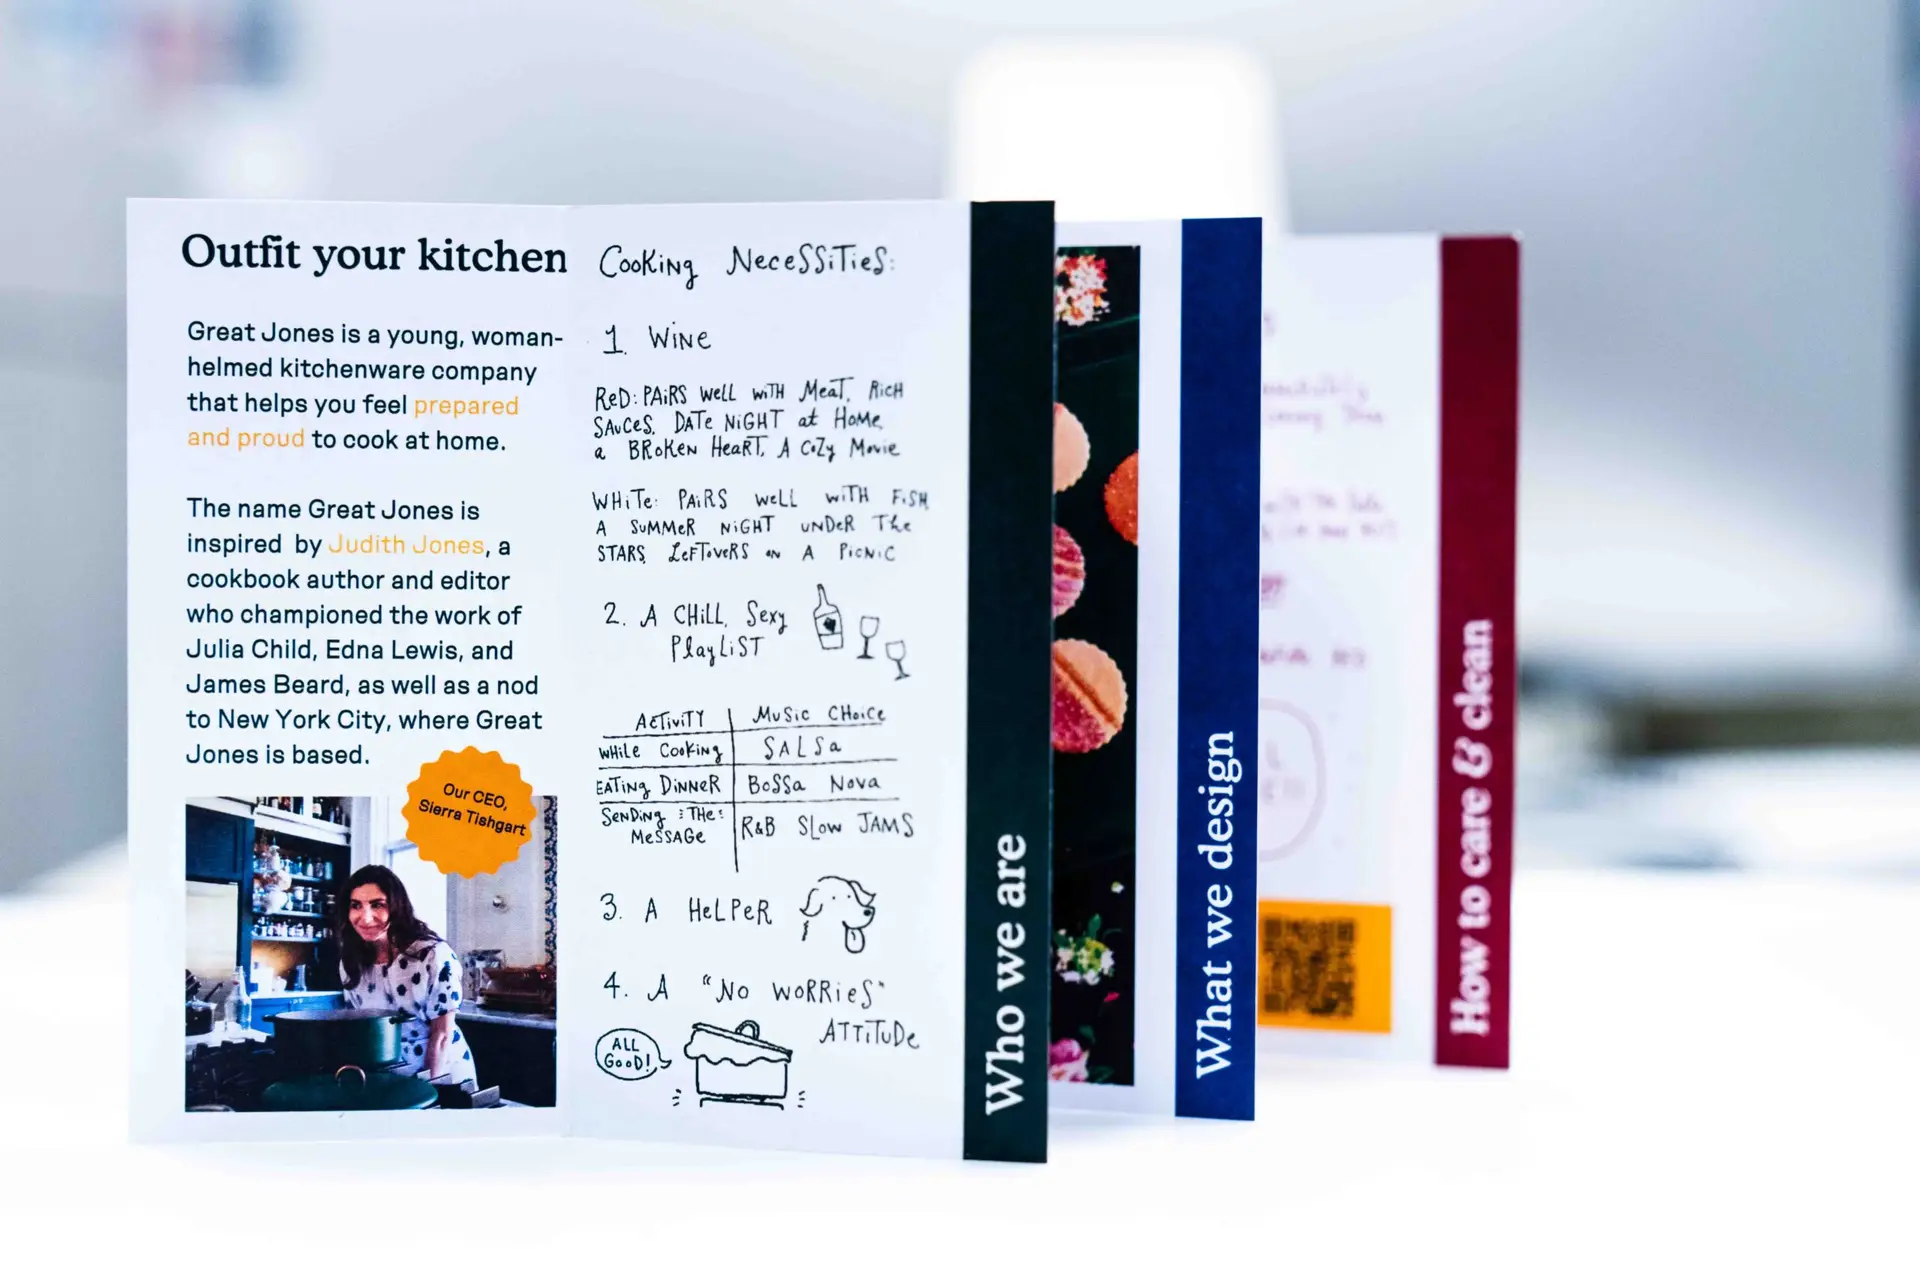 Outfit your kitchen
Great Jones is a young, woman-
helmed kitchenware company
that helps you feel prepared
and proud to cook at home.
The name Great Jones is
inspired by Judith Jones, a
cookbook author and editor
who championed the work of
Julia Child, Edna Lewis, and
James Beard, as well as a nod
to New York City, where Great
Jones is based.
Our CEO,
Sierra Tishgart
Cooking Necessities:
1. Wine
Red: Pairs well with Meat, Rich
Sauces, Date Night at Home,
a Broken Heart, A Cozy Movie
White: Pairs well with Fish,
A Summer Night under The
Stars, Leftovers on A Picnic
2. A Chill, Sexy
Playlist
Activity Music Choice
While Cooking Salsa
Eating Dinner Bossa Nova
Sending :The: R&B Slow Jams
Message
3. A Helper
4. A "No Worries"
Attitude
All
Good!
Who we are
What we design
How to care & clean